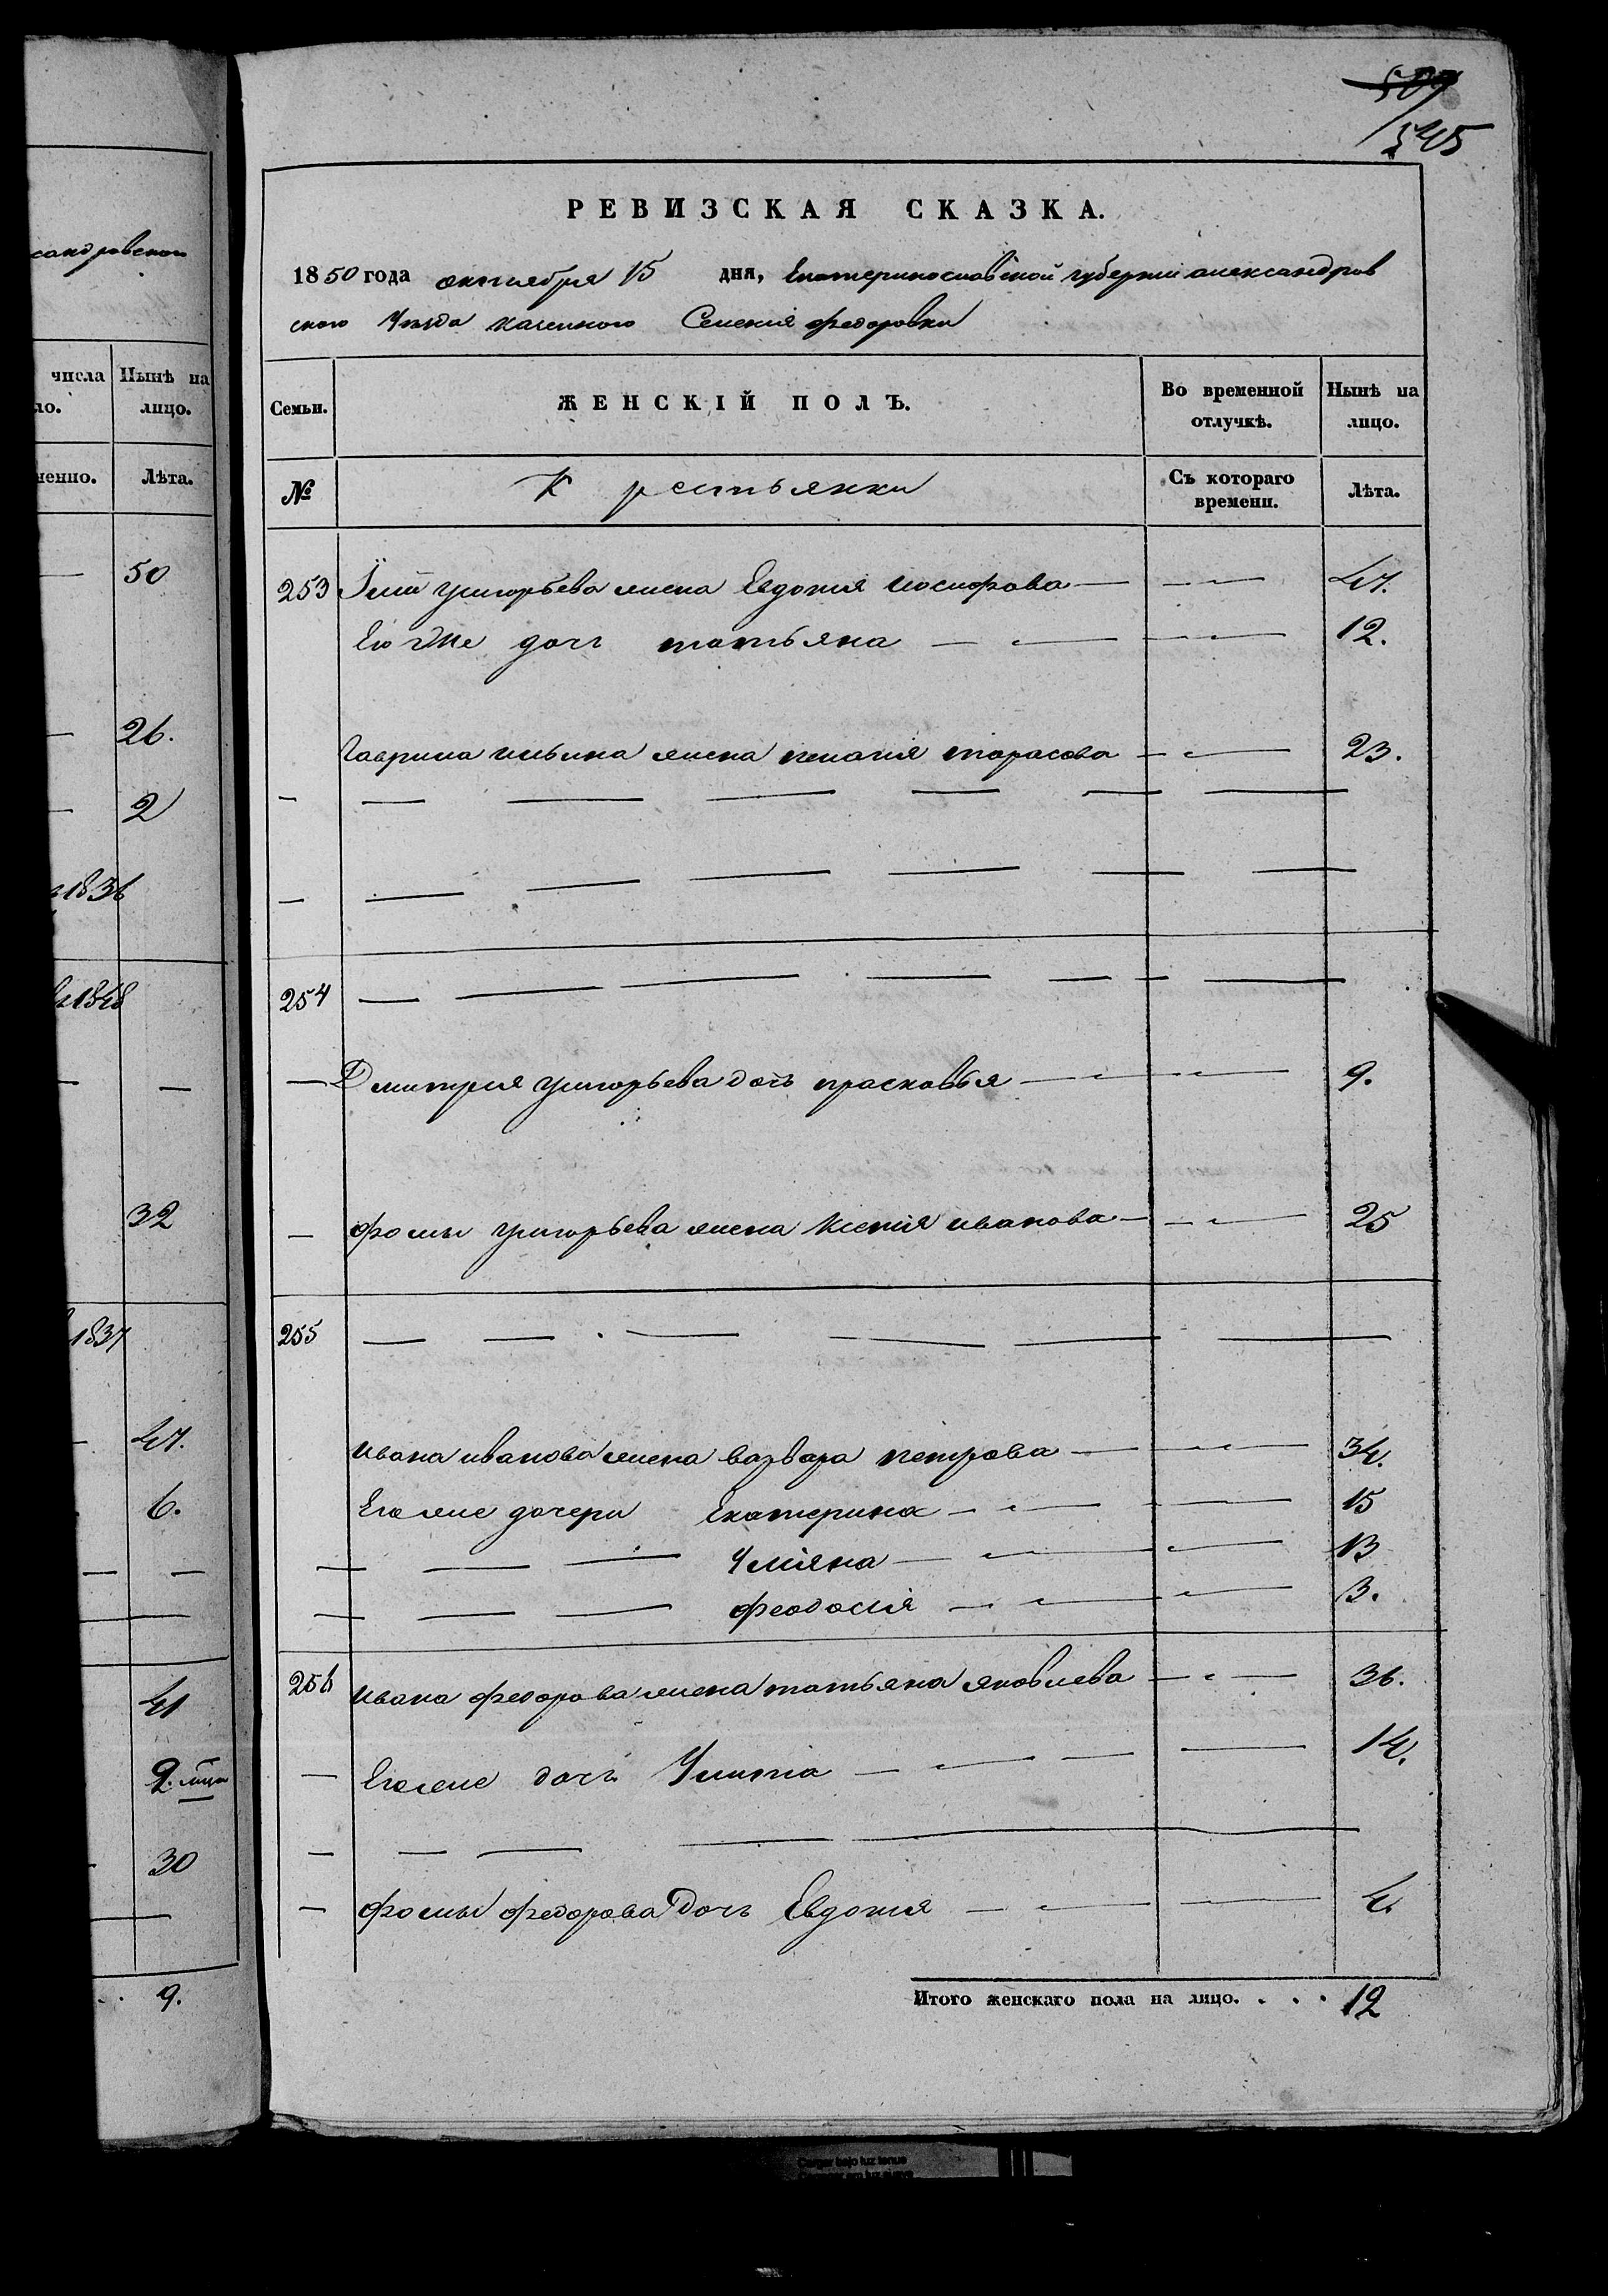 509
545
РЕВИЗСКАЯ СКАЗКА.
1850 года октября 15 дня, Екатеринославской губернии александров
ского Уезда казенного Селения федоровки
Семьи. ЖЕНСКІЙ ПОЛЪ. Во временной отлучкѣ. Нынѣ на лицо.
№ Крестьянки Съ котораго времени. Лѣта.
253 григорьева жена Евдокия иосифова 47.
Его же дочь татьяна 12.
Гаврила ильина жена пелагия тарасова 23.
254
Дмитрия григорьева дочь прасковья 9.
фомы григорьева жена Ксения иванова 25
255
ивана иванова жена варвара петрова 34.
Его же дочери Екатерина 15
Улияна 13
феодосия 3.
256 ивана федорова жена татьяна яковлева 36.
Его же дочь Улита 14.
фомы федорова Дочь Евдокия 4.
Итого женскаго пола на лицо. . . . 12
сандровского
числа Нынѣ на
ло. лицо.
менно. Лѣта.
50
26.
2
1836
1848
32
1837
47.
6.
41
9.
30
9.